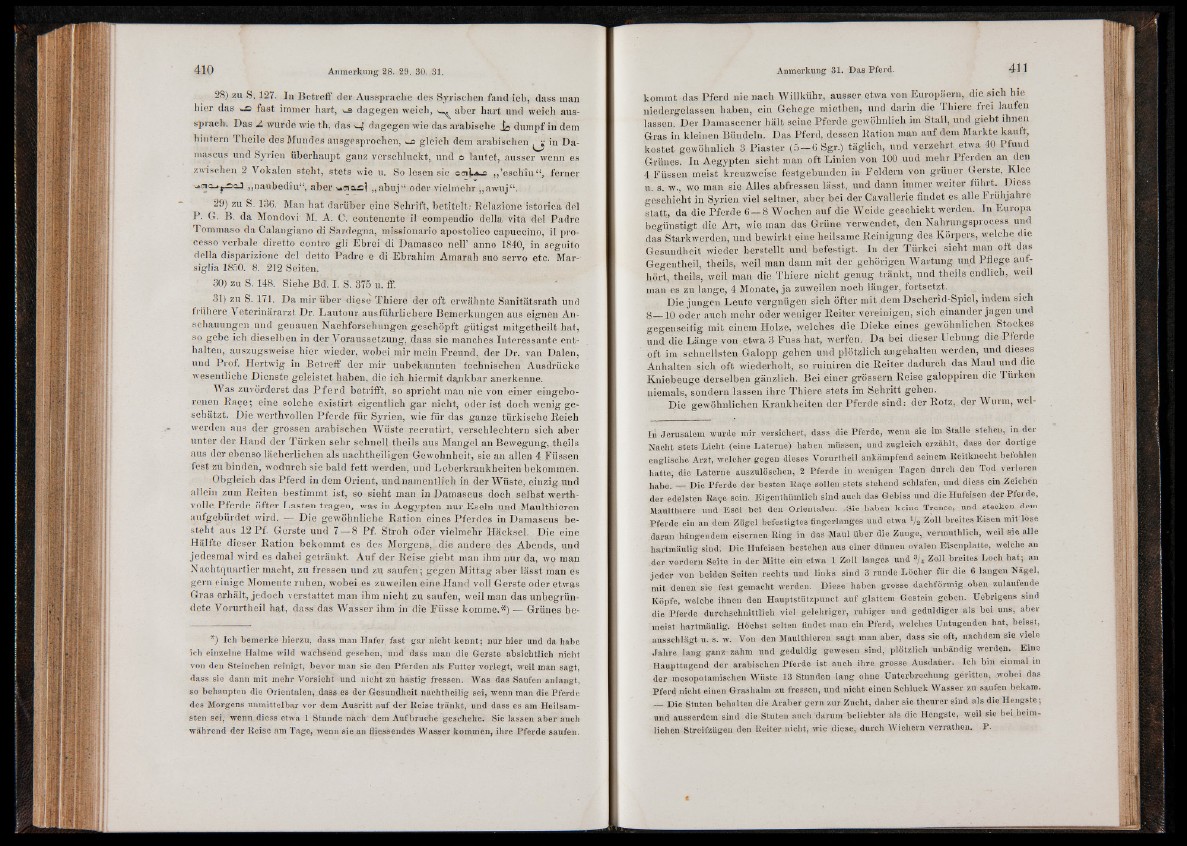 410 Anmerkung 28. 29. 30. 31.
28) zu S. 127. In Betreff der Aussprache des Syrischen fand ich, dass man
hier das ܟ fast immer hart, dagegen weich, aber hart und weich aus-
sprach. Das wurde wie th, das dagegen wie das arabische ظ dumpf in dem
hintern Theile des Mundes ausgesprochen, gleich dem arabischen in Da-
mascus und Syrien überhaupt ganz verschluckt, und o lautet, ausser wenn es
zwischen 2 Vokalen steht, stets wie u. So lesen sie „'eschin“, ferner
„naubediu“, aber „abuj“ oder vielmehr „awuj“.
29) zu S. 136. Man hat darüber eine Schrift, betitelt: Relazione istorica del
P. G. B. da Mondovi M. A. C. contenente il compendio della vita del Padre
Tommaso da Calangiano di Sardegna, missionario apostolico capuccino, il pro-
cesso verbale diretto contro gli Ebrei di Damasco nell' anno 1840, in seguito
della disparizione del detto Padre e di Ebrahim Amarah suo servo etc. Mar-
siglia 1850. 8. 212 Seiten.
30) zu S. 148. Siehe Bd. I. S. 375 u. ff.
31) zu S. 171. Da mir über diese Thiere der oft erwähnte Sanitätsrath und
frühere Veterinärarzt Dr. Lautour ausführlichere Bemerkungen aus eignen An-
schauungen und genauen Nachforschungen geschöpft gütigst mitgetheilt hat,
so gebe ich dieselben in der Voraussetzung, dass sie manches Interessante ent-
halten, auszugsweise hier wieder, wobei mir mein Freund, der Dr. van Dalen,
und Prof. Hertwig in Betreff der mir unbekannten technischen Ausdrücke
wesentliche Dienste geleistet haben, die ich hiermit dankbar anerkenne.
Was zuvörderst das Pferd betrifft, so spricht man nie von einer eingebo-
renen Raçe; eine solche existirt eigentlich gar nicht, oder ist doch wenig ge-
schätzt. Die werthvollen Pferde für Syrien, wie für das ganze türkische Reich
werden aus der grossen arabischen Wüste recrutirt, verschlechtern sich aber
unter der Hand der Türken sehr schnell theils aus Mangel an Bewegung, theils
aus der ebenso lächerlichen als nachtheiligen Gewohnheit, sie an allen 4 Füssen
fest zu binden, wodurch sie bald fett werden, und Leberkrankheiten bekommen.
Obgleich das Pferd in dem Orient, und namentlich in der Wüste, einzig und
allein zum Reiten bestimmt ist, so sieht man in Damascus doch selbst werth-
volle Pferde öfter Lasten tragen, was in Aegypten nur Eseln und Maulthieren
aufgebürdet wird. — Die gewöhnliche Ration eines Pferdes in Damascus be-
steht aus 12 Pf. Gerste und 7—8 Pf. Stroh oder vielmehr Häcksel. Die eine
Hälfte dieser Ration bekommt es des Morgens, die andere des Abends, und
jedesmal wird es dabei getränkt. Auf der Reise giebt man ihm nur da, wo man
Nachtquartier macht, zu fressen und zu saufen; gegen Mittag aber lässt man es
gern einige Momente ruhen, wobei es zuweilen eine Hand voll Gerste oder etwas
Gras erhält, jedoch verstattet man ihm nicht zu saufen, weil man das unbegrün-
dete Vorurtheil hat, dass das Wasser ihm in die Füsse komme.*) — Grünes be-
*) Ich bemerke hierzu, dass man Hafer fast gar nicht kennt; nur hier und da habe
ich einzelne Halme wild wachsend gesehen, und dass man die Gerste absichtlich nicht
von den Steinchen reinigt, bevor man sie den Pferden als Futter vorlegt, weil man sagt,
dass sie dann mit mehr Vorsicht und nicht zu hastig fressen. Was das Saufen anlangt,
so behaupten die Orientalen, dass es der Gesundheit nachtheilig sei, wenn man die Pferde
des Morgens unmittelbar vor dem Ausritt auf der Reise tränkt, und dass es am Heilsam-
sten sei, wenn diess etwa 1 Stunde nach dem Aufbruche geschehe. Sie lassen aber auch
während der Reise am Tage, wenn sie an fliessendes Wasser kommen, ihre Pferde saufen.
Anmerkung 31. Das Pferd. 411
kommt das Pferd nie nach Willkühr, ausser etwa von Europäern, die sich hie
niedergelassen haben, ein Gehege miethen, und darin die Thiere frei laufen
lassen. Der Damascener hält seine Pferde gewöhnlich im Stall, und giebt ihnen
Gras in kleinen Bündeln. Das Pferd, dessen Ration man auf dem Markte kauft,
kostet gewöhnlich 3 Piaster (5—6 Sgr.) täglich, und verzehrt etwa 40 Pfund
Grünes. In Aegypten sieht man oft Linien von 100 und mehr Pferden an den
4 Füssen meist kreuzweise festgebunden in Feldern von grüner Gerste, Klee
u. s. w., wo man sie Alles abfressen lässt, und dann immer weiter führt. Diess
geschieht in Syrien viel seltner, aber bei der Cavallerie findet es alle Frühjahre
statt, da die Pferde 6—8 Wochen auf die Weide geschickt werden. In Europa
begünstigt die Art, wie man das Grüne verwendet, den Nahrungsprocess und
das Starkwerden, und bewirkt eine heilsame Reinigung des Körpers, welche die
Gesundheit wieder herstellt und befestigt. In der Türkei sieht man oft das
Gegentheil, theils, weil man dann mit der gehörigen Wartung und Pflege auf-
hört, theils, weil man die Thiere nicht genug tränkt, und theils endlich, weil
man es zu lange, 4 Monate, ja zuweilen noch länger, fortsetzt.
Die jungen Leute vergnügen sich öfter mit dem Dscherid-Spiel, indem sich
8—10 oder auch mehr oder weniger Reiter vereinigen, sich einander jagen und
gegenseitig mit einem Holze, welches die Dicke eines gewöhnlichen Stockes
und die Länge von etwa 3 Fuss hat, werfen. Da bei dieser Uebung die Pferde
oft im schnellsten Galopp gehen und plötzlich angehalten werden, und dieses
Anhalten sich oft wiederholt, so ruiniren die Reiter dadurch das Maul und die
Kniebeuge derselben gänzlich. Bei einer grössern Reise galoppiren die Türken
niemals, sondern lassen ihre Thiere stets im Schritt gehen.
Die gewöhnlichen Krankheiten der Pferde sind: der Rotz, der Wurm, wel-
In Jerusalem wurde mir versichert, dass die Pferde, wenn sie im Stalle stehen, in der
Nacht stets Licht (eine Laterne) haben müssen, und zugleich erzählt, dass der dortige
englische Arzt, welcher gegen dieses Vorurtheil ankämpfend seinem Reitknecht befohlen
hatte, die Laterne auszulöschen, 2 Pferde in wenigen Tagen durch den Tod verloren
habe. — Die Pferde der besten Raçe sollen stets stehend schlafen, und diess ein Zeichen
der edelsten Raçe sein. Eigenthümlich sind auch das Gebiss und die Hufeisen der Pferde,
Maulthiere und Esel bei den Orientalen. Sie haben keine Trense, und stecken dem
Pferde ein an dem Zügel befestigtes fingerlanges und etwa 1/2 Zoll breites Eisen mit lose
daran hängendem eisernen Ring in das Maul über die Zunge, vermuthlich, weil sie alle
hartmäulig sind. Die Hufeisen bestehen aus einer dünnen ovalen Eisenplatte, welche an
der vordern Seite in der Mitte ein etwa 1 Zoll langes und 3/4 Zoll breites Loch hat; an
jeder von beiden Seiten rechts und links sind 3 runde Löcher für die 6 langen Nägel,
mit denen sie fest gemacht werden. Diese haben grosse dachförmig oben zulaufende
Köpfe, welche ihnen den Hauptstützpunct auf glattem Gestein geben. Uebrigens sind
die Pferde durchschnittlich viel gelehriger, ruhiger und geduldiger als bei uns, aber
meist hartmäulig. Höchst selten findet man ein Pferd, welches Untugenden hat, beisst,
ausschlägt u. s. w. Von den Maulthieren sagt man aber, dass sie oft, nachdem sie viele
Jahre lang ganz zahm und geduldig gewesen sind, plötzlich unbändig werden. Eine
Haupttugend der arabischen Pferde ist auch ihre grosse Ausdauer. Ich bin einmal in
der mesopotamischen Wüste 13 Stunden lang ohne Unterbrechung geritten, wobei das
Pferd nicht einen Grashalm zu fressen, und nicht einen Schluck Wasser zu saufen bekam.
— Die Stuten behalten die Araber gern zur Zucht, daher sie theurer sind als die Hengste;
und ausserdem sind die Stuten auch darum beliebter als die Hengste, weil sie bei heim-
lichen Streifzügen den Reiter nicht, wie diese, durch Wiehern verrathen. P.